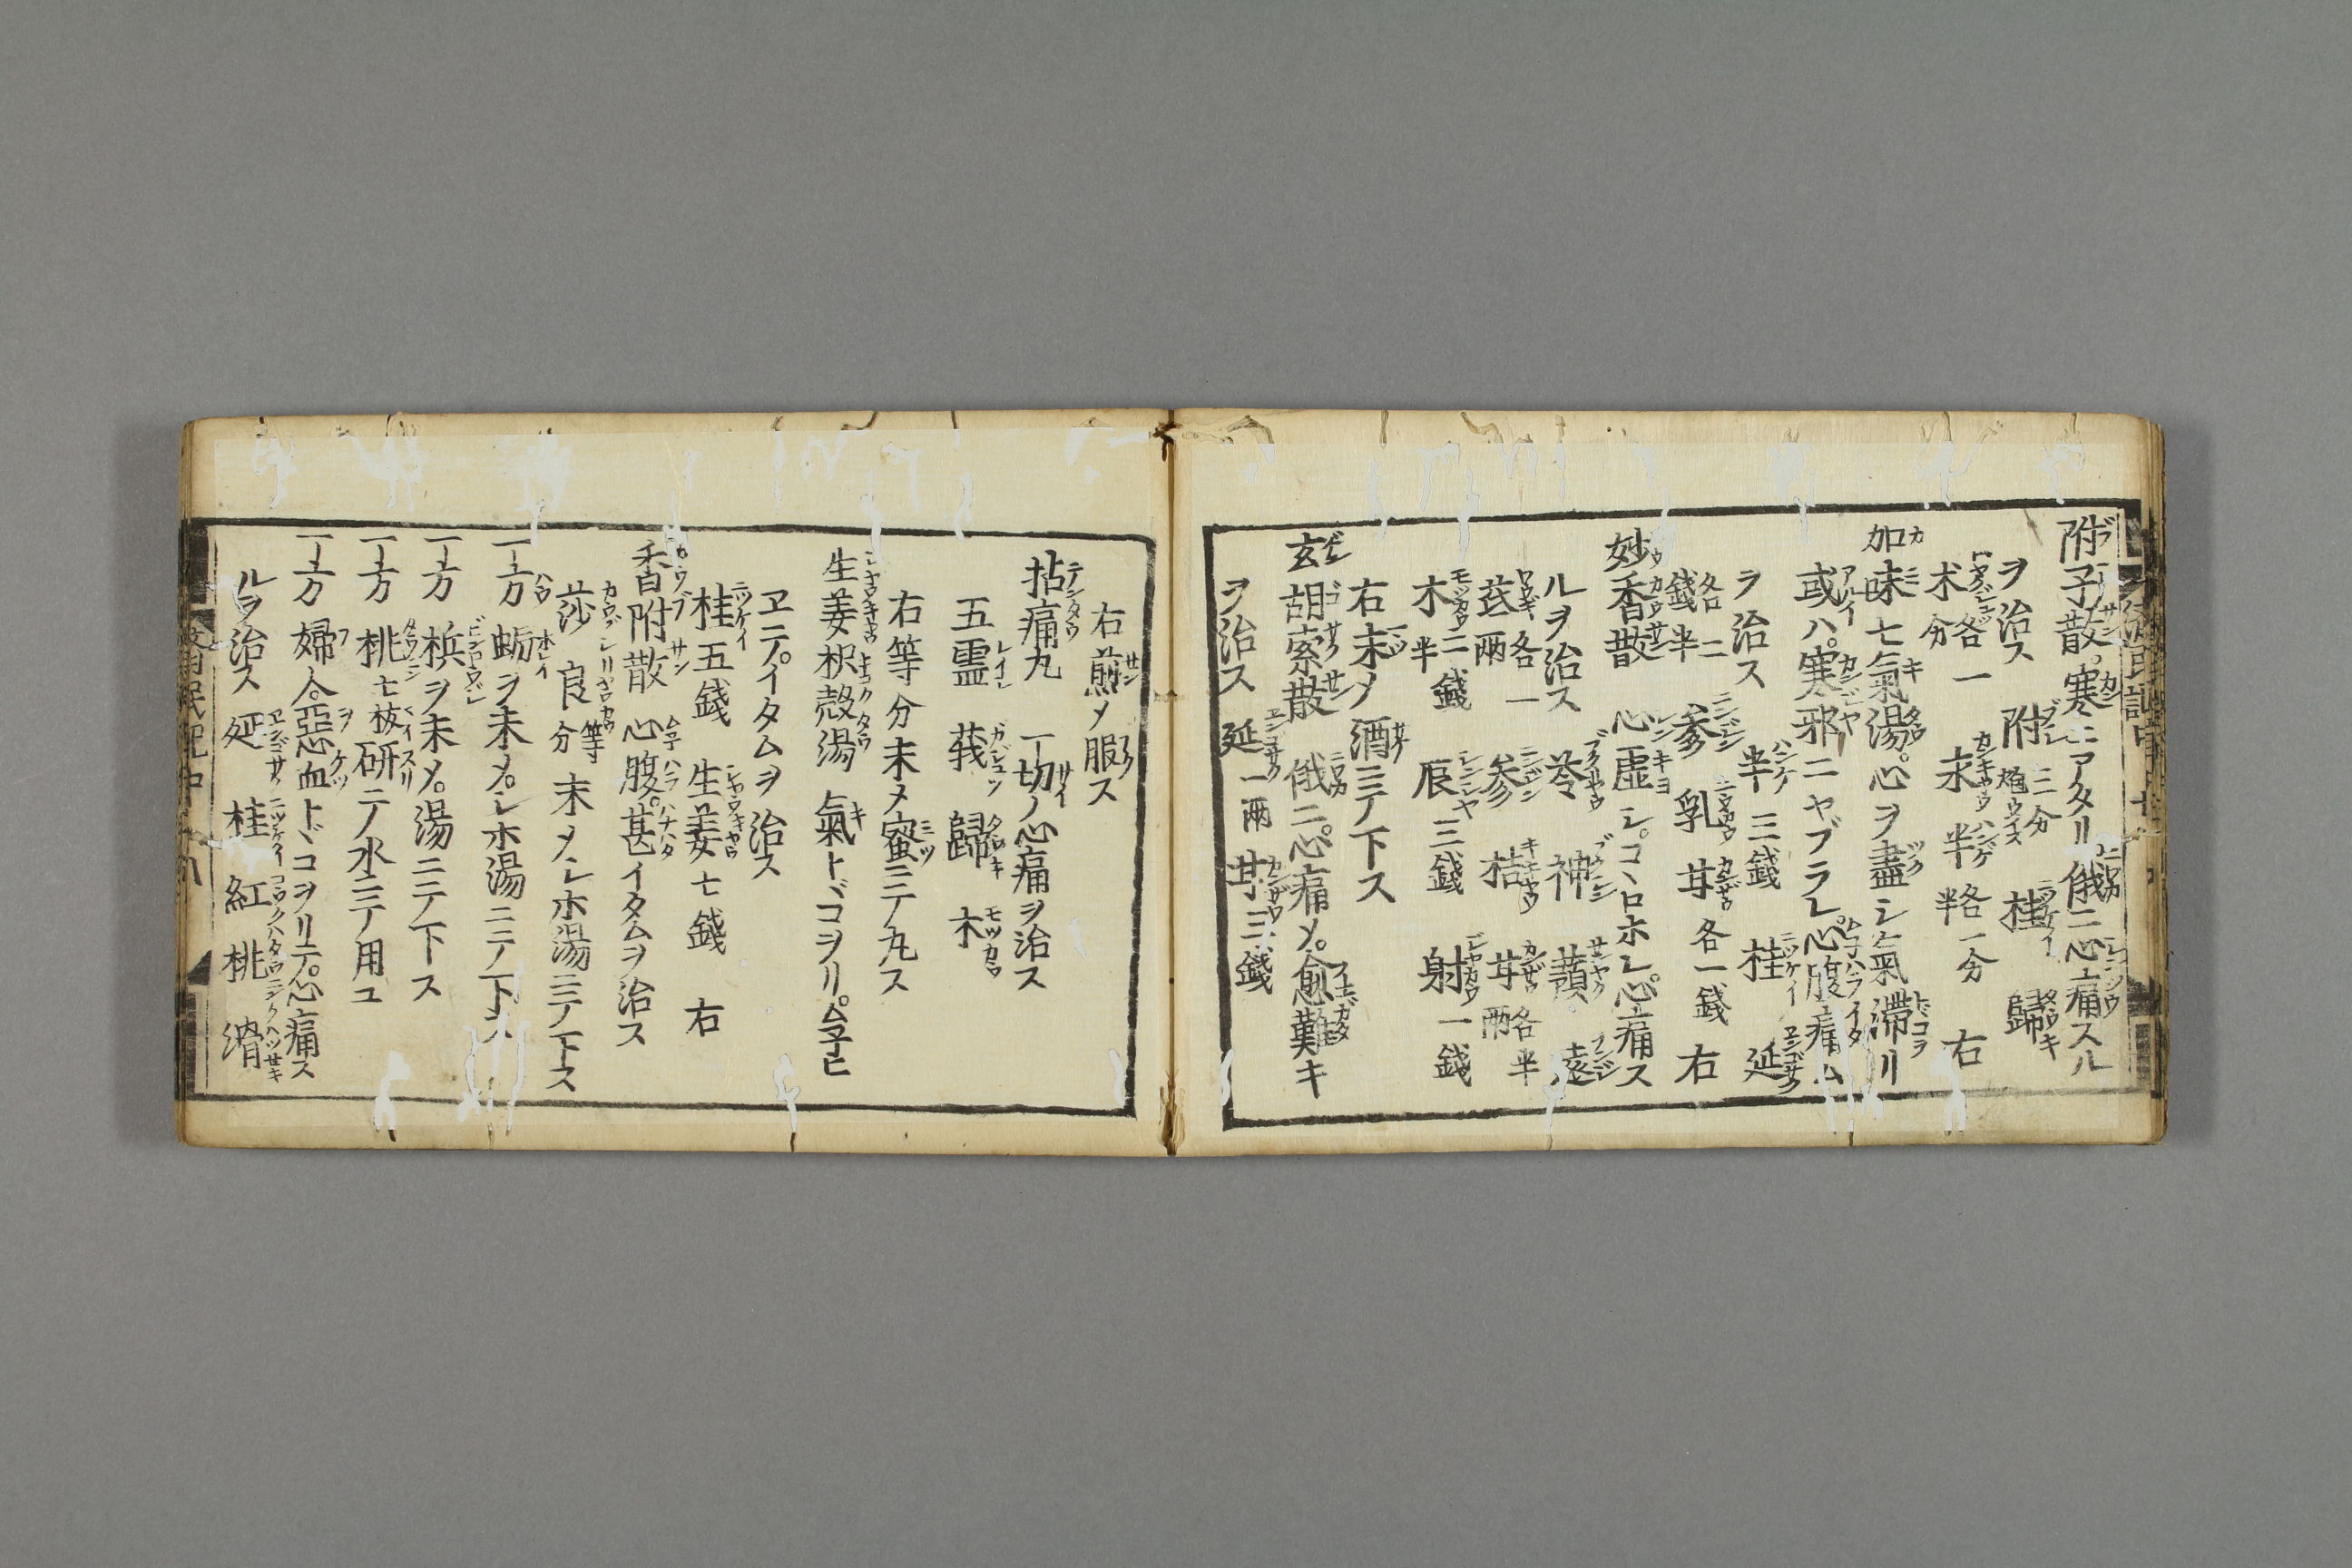 附子散。寒ニアタリ。俄ニ心痛スル
ヲ治ス 附三分炮 桂 歸
朮各一分 求 半各一分半 右
加味七氣湯。心ヲ盡シ氣滞リ
或ハ。寒邪ニヤブラレ。心腹痛ム
ヲ治ス 半三錢 桂 延
各二錢半 參 乳 甘各一錢 右
妙香散 心虛シ。コヽロホレ。心痛ス
ルヲ治ス 苓 神 蕷 遠
茋各一兩 參 桔 甘各半兩
木二錢半 辰三錢 射一錢
右末メ酒ニテ下ス
玄胡索散 俄ニ。心痛メ。愈難キ
ヲ治ス 延一兩 甘三錢
右煎メ服ス
拈痛丸 一切ノ心痛ヲ治ス
五靈 莪 歸 木
右等分末メ蜜ニテ丸ス
生姜枳殻湯 氣トヾコヲリ。ムネヒ
ヱテ。イタムヲ治ス
桂五錢 生姜七錢 右
香附散 心腹。甚イタムヲ治ス
莎 良等分 末メシホ湯ニテ下ス
一方 蛎ヲ末メ。シホ湯ニテ下ス
一方 檳ヲ末メ。湯ニテ下ス
一方 桃七枚研ニテ水ニテ用ユ
一方 婦人。惡血トヾコヲリテ。心痛ス
ルヲ治ス 延 桂 紅 桃 滑